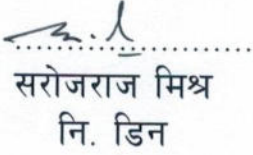 सरोजराज मिश्र
नि. डिन